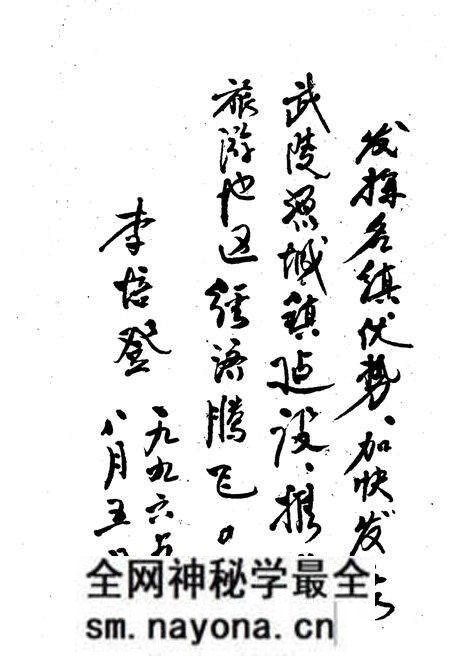 发挥名镇优势、加快发
武陵源城镇建设、
旅游地区经济腾飞。
李培登
一九九六年
八月五
全网神秘学最全
sm.nayona.cn